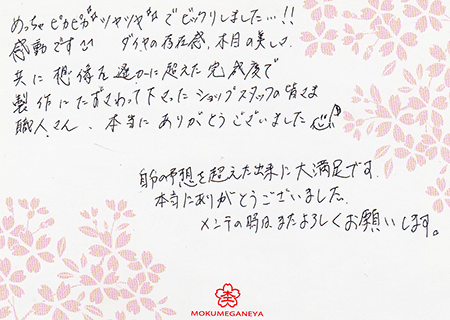 めっちゃピカピカ ツヤツヤ でビックリしました…!!
感動です〜 ダイヤの存在感、木目の美しさ
共に想像を遥かに超えた完成度で
製作にたずさわって下さったショップスタッフの皆さま
職人さん、本当にありがとうございました
自分の予想を超えた出来に大満足です。
本当にありがとうございました。
メンテの時はまたよろしくお願いします。
MOKUMEGANEYA